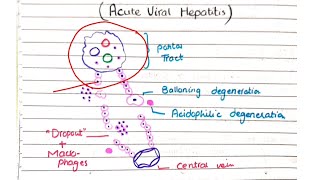 (Acute Viral Hepatitis)
Portal
Tract
Balloning degeneratia
Acidophilic degeneratia
"Dropout"
+
Macro-
phages
Central vein